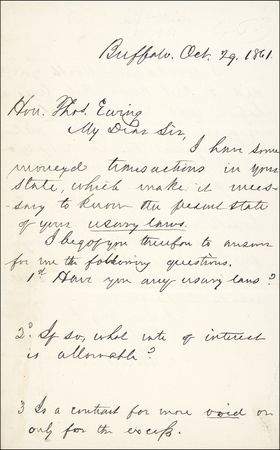 Buffalo. Oct. 29. 1861
Hon. Thos. Ewing
My Dear Sir,
I have some
moneyed transactions in your
state, which make it neces-
sary to know the present state
of your usury laws.
I beg of you therefore to answer
for me the following questions.
1st Have you any usury laws?
2d If so, what rate of interest
is allowable?
3 Is a contract for more void or
only for the excess.